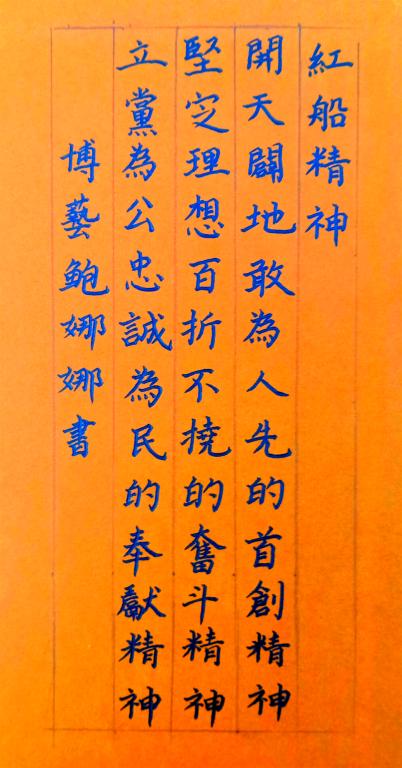 紅船精神
開天闢地敢為人先的首創精神
堅定理想百折不撓的奮斗精神
立黨為公忠誠為民的奉獻精神
博藝鮑娜娜書